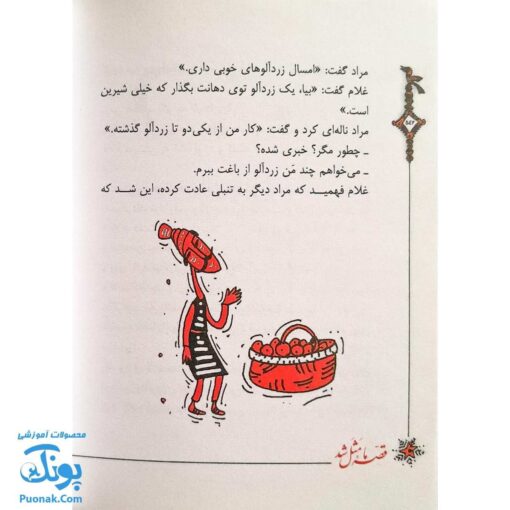 مراد گفت: «امسال زردآلوهای خوبی داری.»
غلام گفت: «بیا، یک زردآلو توی دهانت بگذار که خیلی شیرین
است.»
مراد ناله‌ای کرد و گفت: «کار من از یکی‌دو تا زردآلو گذشته.»
ـ چطور مگر؟ خبری شده؟
ـ می‌خواهم چند مَن زردآلو از باغت ببرم.
غلام فهمیـد که مراد دیگر به تنبلی عادت کرده، این شـد که
قصه ما مثل شد
محصولات آموزشی
پونک
Puonak.Com